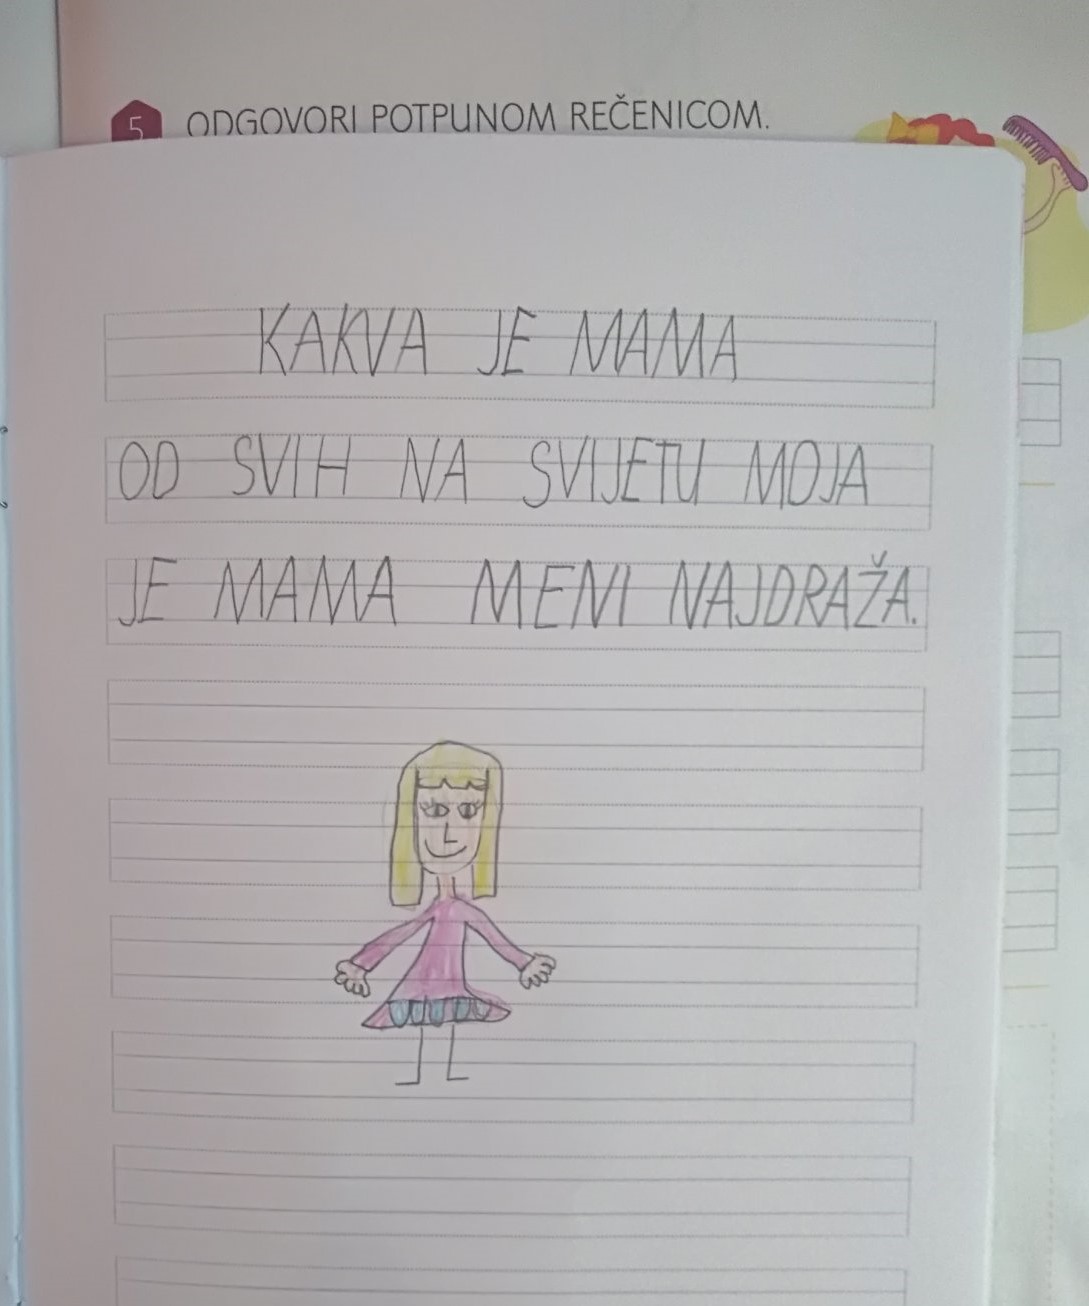 5 ODGOVORI POTPUNOM REČENICOM.
KAKVA JE MAMA
OD SVIH NA SVIJETU MOJA
JE MAMA MENI NAJDRAŽA.